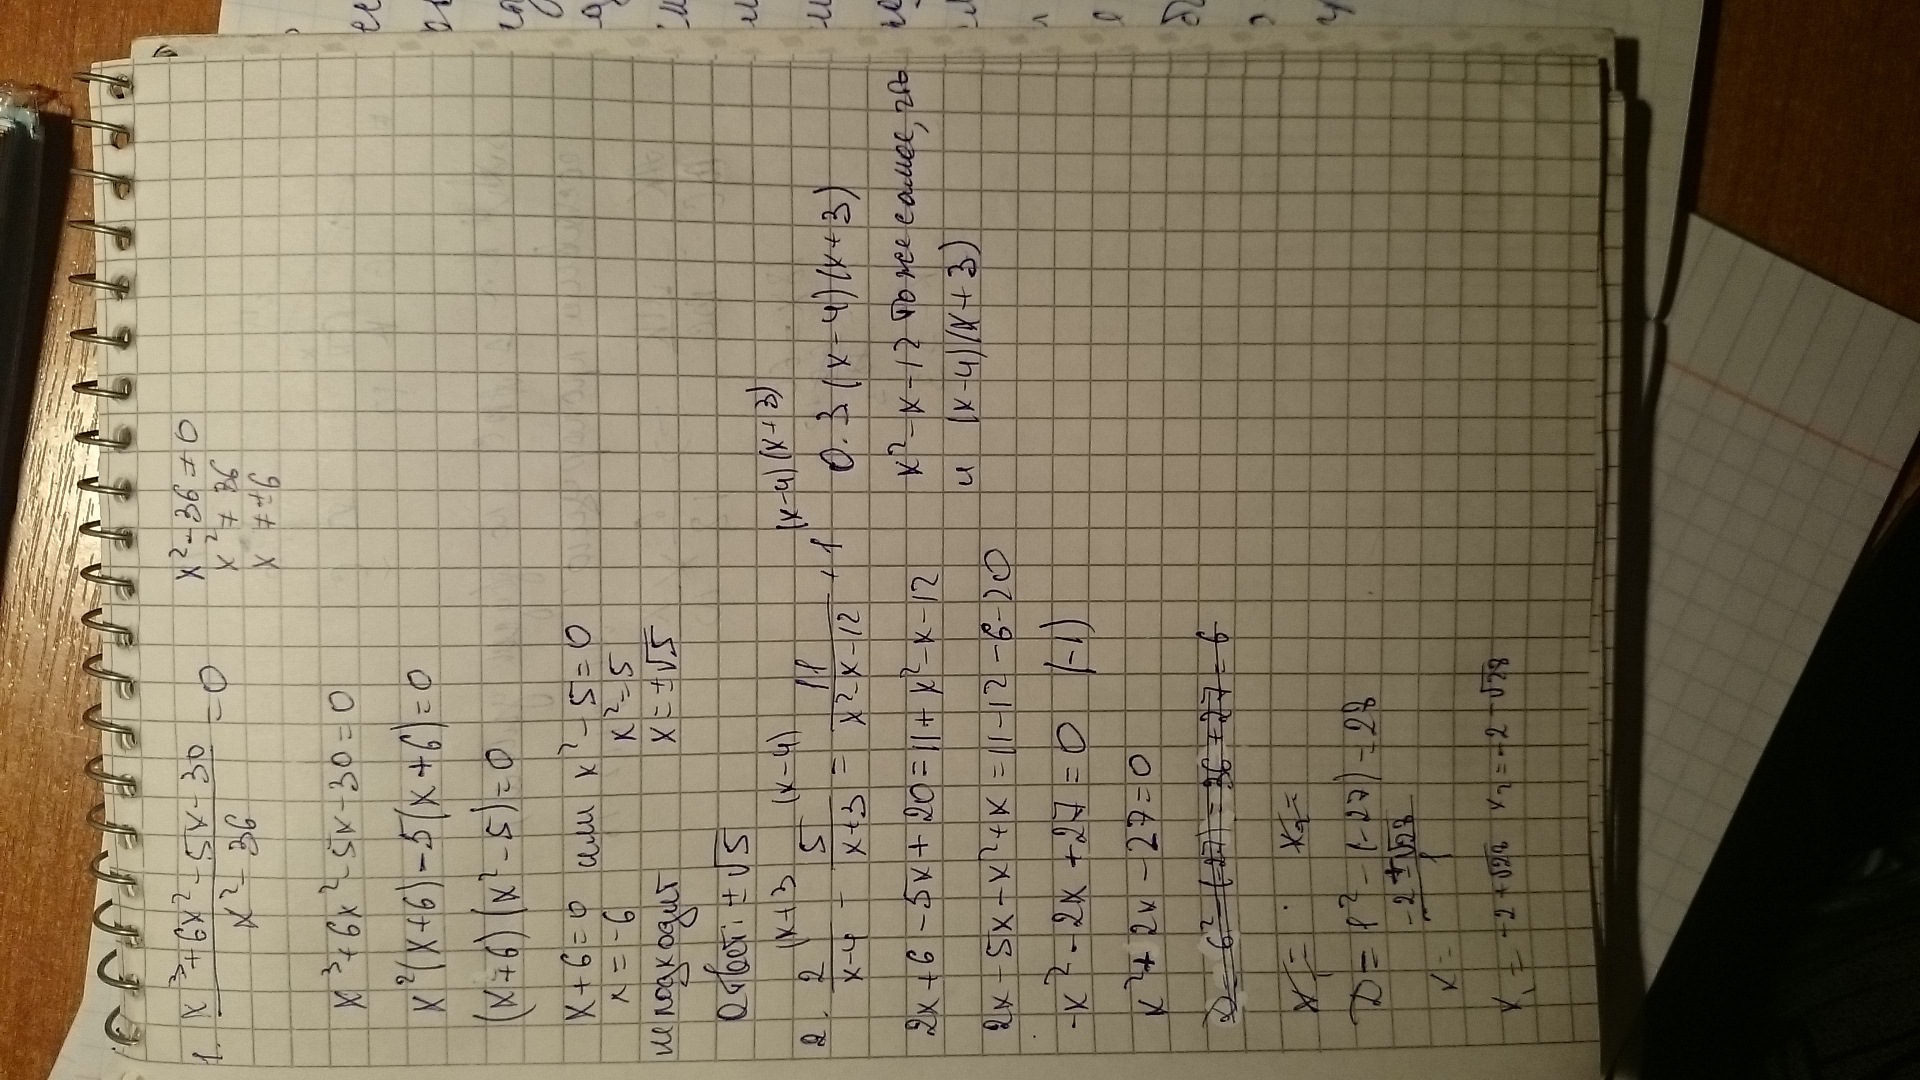 1. x³+6x²-5x-30 / x²-36 = 0
x²-36≠0
x²≠36
x≠±6
x³+6x²-5x-30=0
x²(x+6)-5(x+6)=0
(x+6)(x²-5)=0
x+6=0 или x²-5=0
x=-6 x²=5
не подходит x=±√5
Ответ: ±√5
2. 2/x-4 (x+3 - 5/x+3 (x-4) = 11/x²-x-12 + 1 (x-4)(x+3)
О.З (x-4)(x+3)
2x+6-5x+20=11+x²-x-12
x²-x-12 тоже самое, что
и (x-4)(x+3)
2x-5x-x²+x=11-12-6-20
-x²-2x+27=0 (-1)
x²+2x-27=0
D=6²-(-27)=36+27=6
x₁= x₂=
D=1²-(-27)=28
x= -2±√28 / 1
x₁=-2+√28 x₂=-2-√28